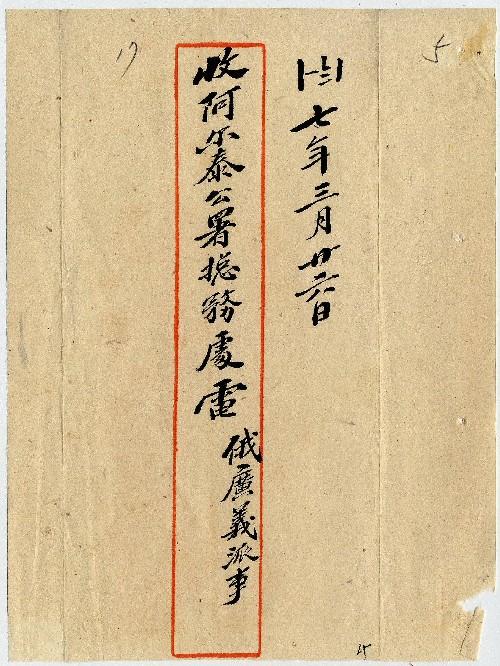 5
七年三月廿六日
收阿尔泰公署總務處電
俄廣義派事
17